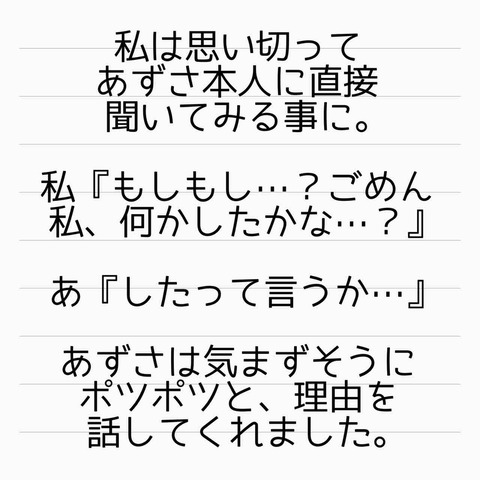 私は思い切って
あずさ本人に直接
聞いてみる事に。
私『もしもし…？ごめん
私、何かしたかな…？』
あ『したって言うか…』
あずさは気まずそうに
ポツポツと、理由を
話してくれました。